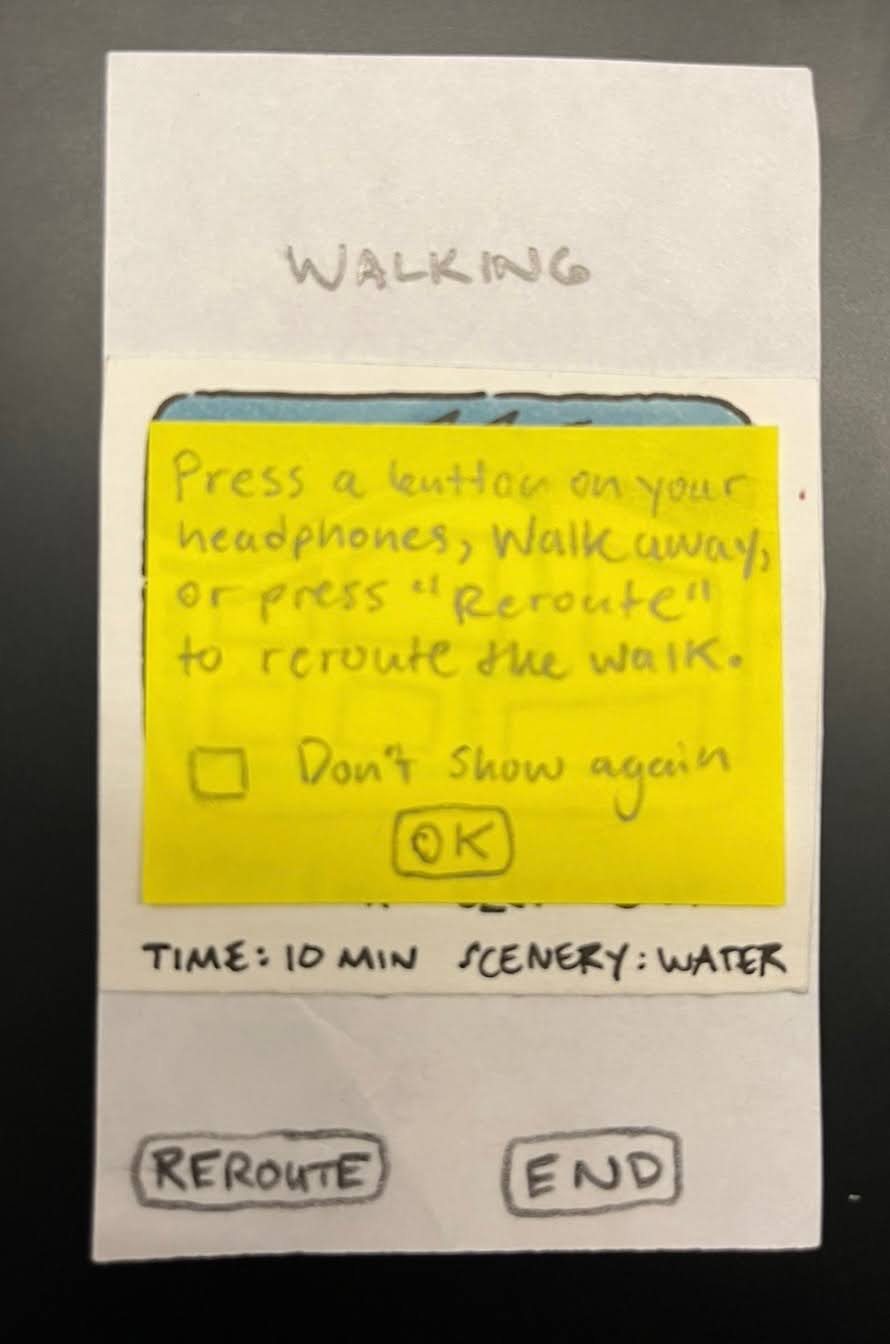 WALKING
Press a button on your
headphones, Walk away,
or press "Reroute"
to reroute the walk.
Don't show again
OK
TIME: 10 MIN SCENERY: WATER
REROUTE END